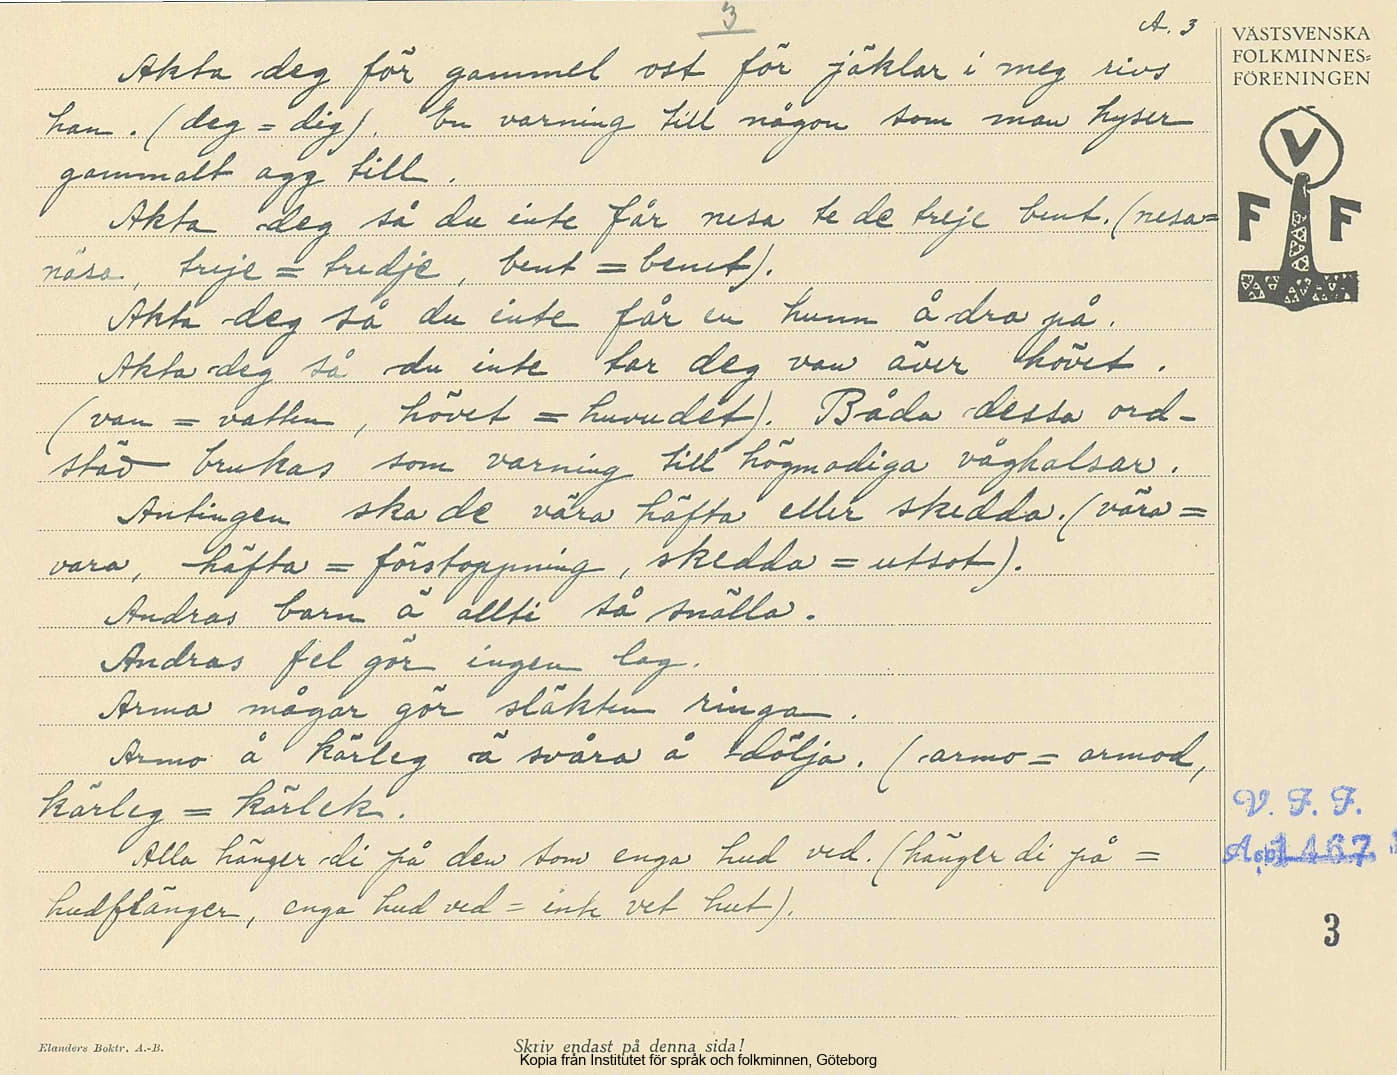 3
A. 3
Akta deg för gammel ost för jäklar i meg rivs
han. (deg = dig). En varning till någon som man hyser
gammalt agg till.
Akta deg så du inte får nesa te de treje bent. (nesa =
näsa, treje = tredje, bent = benet).
Akta deg så du inte får en hunn å dra på.
Akta deg så du inte tar deg van äver hövet.
(van = vatten, hövet = huvudet). Båda dessa ord-
stäv brukas som varning till högmodiga våghalsar.
Antingen ska de våra häfta eller skedda. (våra =
vara, häfta = förstoppning, skedda = utsot).
Andras barn ä allti så snälla.
Andras fel gör ingen lag.
Arma mågar gör släkten ringa.
Armo å kärleg ä svåra å dölja. (armo = armod,
kärleg = kärlek.
Alla hänger di på den som enga hud ved. (hänger di på =
hudflänger, enga hud ved = inte vet hut).
VÄSTSVENSKA
FOLKMINNES=
FÖRENINGEN
V
F F
V. F. F.
1467
3
Elanders Boktr. A.-B.
Skriv endast på denna sida!
Kopia från Institutet för språk och folkminnen, Göteborg